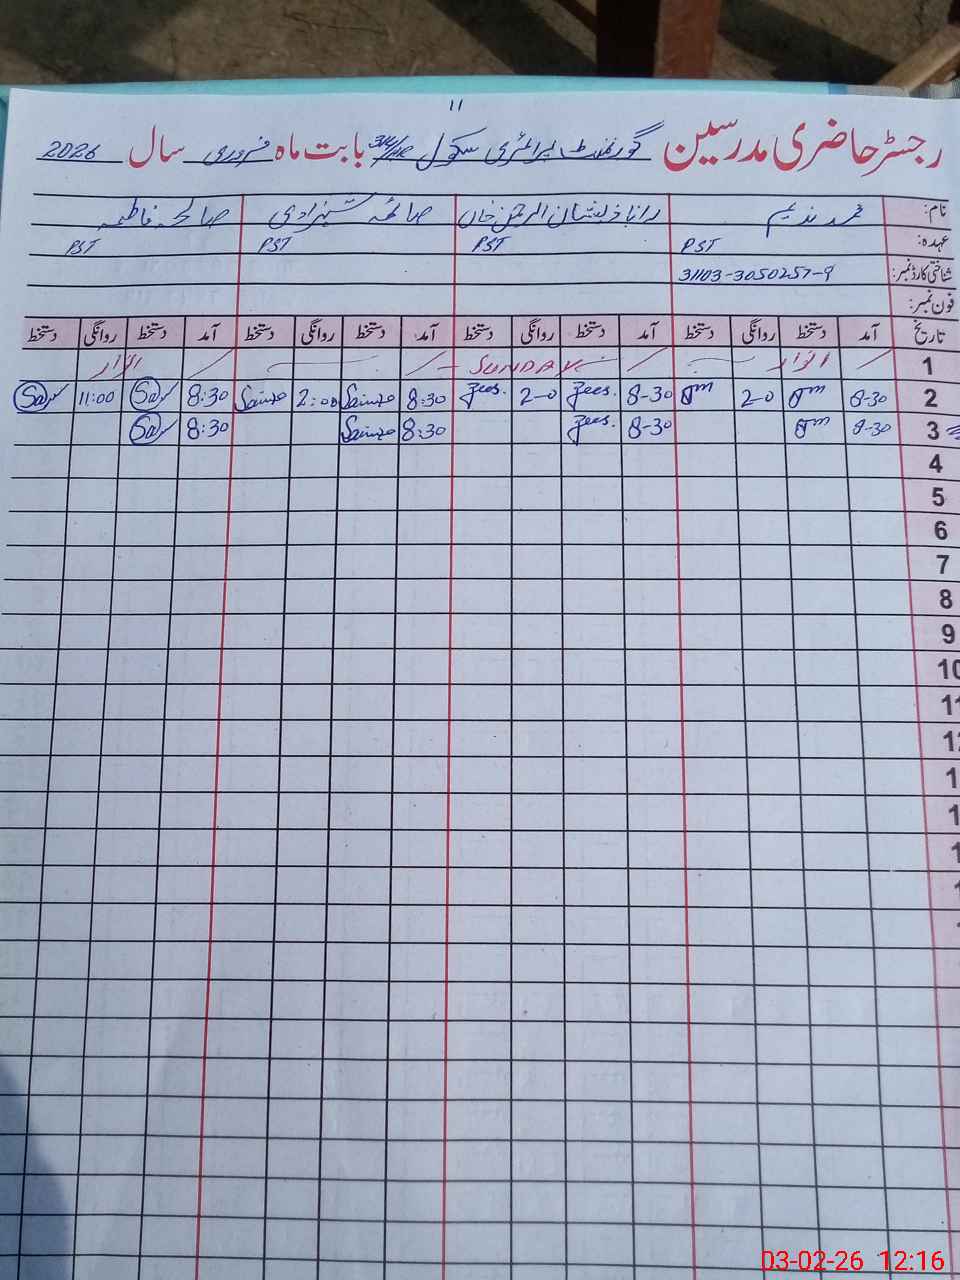 11
رجسٹر حاضری مدرسین گورنمنٹ پرائمری سکول 311/HR بابت ماہ فروری سال 2026
نام: محمد ندیم رانا ذیشان الرحمن خاں صائمہ شہزادی صالحہ فاطمہ
عہدہ: PST PST PST PST
شناختی کارڈ نمبر: 31103-3050257-9
فون نمبر:
تاریخ آمد دستخط روانگی دستخط آمد دستخط روانگی دستخط آمد دستخط روانگی دستخط آمد دستخط روانگی دستخط
1 اتوار SUNDAY اتوار
2 8-30 2-0 8-30 Zees. 2-0 Zees. 8:30 Saima 2:00 Saima 8:30 11:00
3 8-30 8-30 Zees. 8:30 Saima 8:30
4
5
6
7
8
9
10
11
12
1
1
1
1
03-02-26 12:16